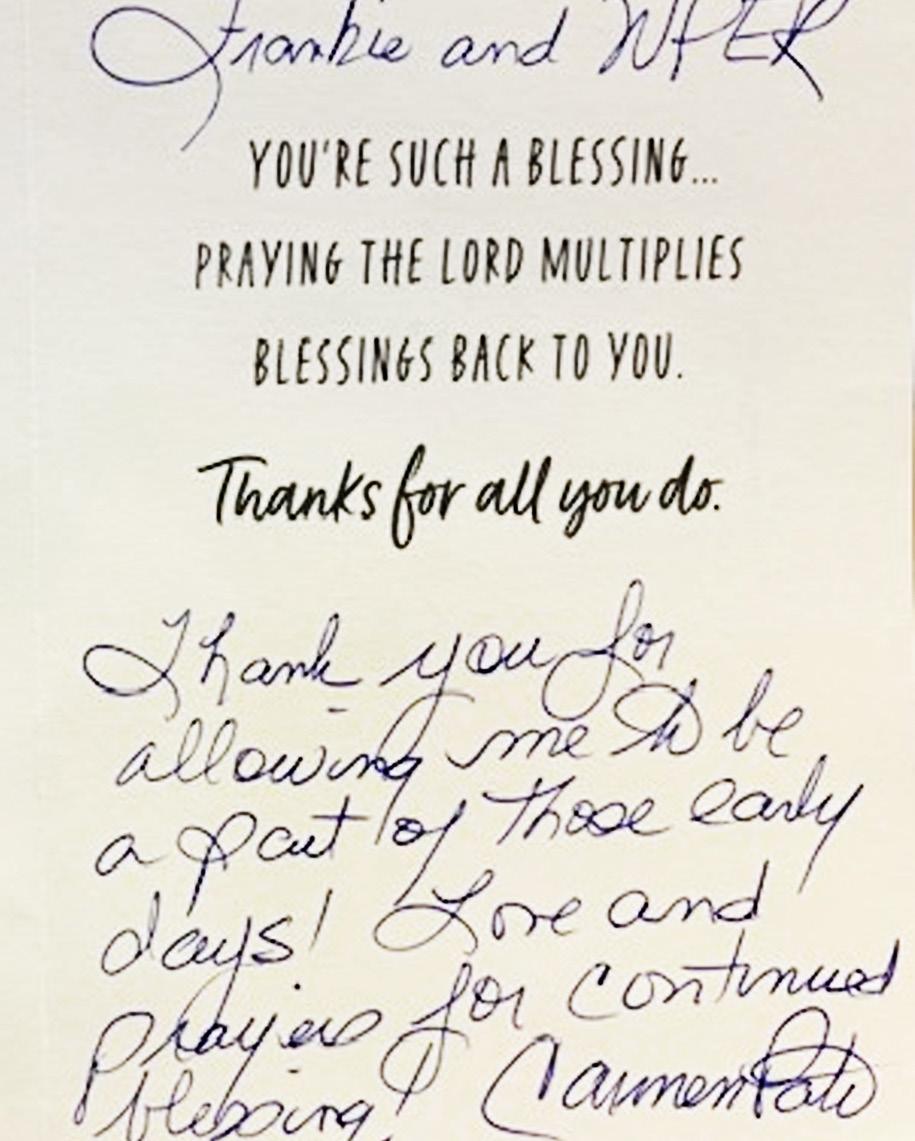 Frankie and WPER
YOU'RE SUCH A BLESSING...
PRAYING THE LORD MULTIPLIES
BLESSINGS BACK TO YOU.
Thanks for all you do.
Thank you for
allowing me to be
a part of those early
days! Love and
prayers for continued
blessing! Carmen Pate